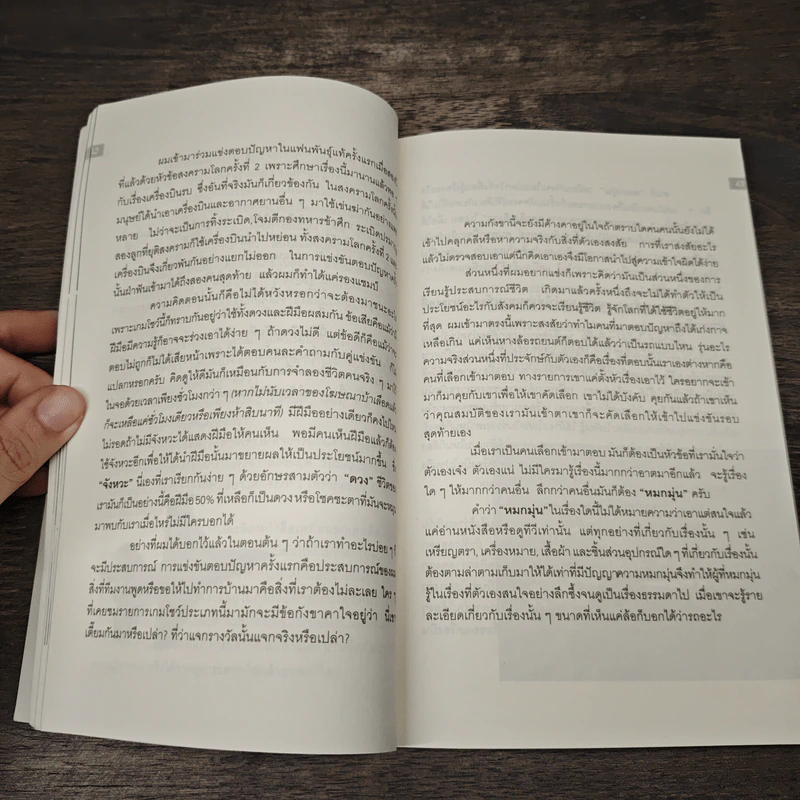 ผมเข้ามาร่วมแข่งตอบปัญหาในแฟนพันธุ์แท้ครั้งแรกเมื่อ
ที่แล้วด้วยหัวข้อสงครามโลกครั้งที่ 2 เพราะศึกษาเรื่องนี้มานานแล้ว
กับเรื่องเครื่องบินรบ ซึ่งอันที่จริงมันก็เกี่ยวข้องกัน ในสงครามโลกครั้ง
มนุษย์ได้นำเอาเครื่องบินและอากาศยานอื่น ๆ มาใช้เข่นฆ่ากันอย่าง
หลาย ไม่ว่าจะเป็นการทิ้งระเบิด,โจมตีกองทหารข้าศึก ระเบิด
สองลูกที่ยุติสงครามก็ใช้เครื่องบินนำไปหย่อน ทั้งสงครามโลกครั้งที่ 2
เครื่องบินจึงเกี่ยวพันกันอย่างแยกไม่ออก ในการแข่งขันตอบปัญหา
นั้นฝ่าฟันเข้ามาได้ถึงสองคนสุดท้าย แล้วผมก็ทำได้แค่รองแชมป์
ความคิดตอนนั้นก็คือไม่ได้หวังหรอกว่าจะต้องมาชนะ
เพราะเกมโชว์นี้ก็ทราบกันอยู่ว่าใช้ทั้งดวงและฝีมือผสมกัน ข้อเสียคือ
ฝีมือมีความรู้ก็อาจจะร่วงเอาได้ง่าย ๆ ถ้าดวงไม่ดี แต่ข้อดีก็คือแม้ว่า
ตอบไม่ถูกก็ไม่ได้เสียหน้าเพราะได้ตอบคนละคำถามกับคู่แข่งขัน
แปลกหรอกครับ คิดดูให้ดีมันก็เหมือนกับการจำลองชีวิตคนจริง ๆ มา
ในจอด้วยเวลาเพียงชั่วโมงกว่า ๆ (หากไม่นับเวลาของโฆษณาบ้าเลือด
ก็จะเหลือแค่ชั่วโมงเดียวหรือเพียงห้าสิบนาที) มีฝีมืออย่างเดียวก็คงไป
ไม่รอดถ้าไม่มีจังหวะได้แสดงฝีมือให้คนเห็น พอมีคนเห็นฝีมือแล้วก็
ใช้จังหวะอีกเพื่อให้ได้นำฝีมือนั้นมาขยายผลให้เป็นประโยชน์มากขึ้น
"จังหวะ" นี่เองที่เราเรียกกันง่าย ๆ ด้วยอักษรสามตัวว่า "ดวง" ชีวิต
เรามันก็เป็นอย่างนี้คือฝีมือ 50% ที่เหลือก็เป็นดวง หรือโชคชะตาที่มันจะ
มาพบกับเราเมื่อไหร่ไม่มีใครบอกได้
อย่างที่ผมได้บอกไว้แล้วในตอนต้น ๆ ว่าถ้าเราทำอะไรบ่อย ๆ
จะมีประสบการณ์ การแข่งขันตอบปัญหาครั้งแรกคือประสบการณ์ของ
สิ่งที่ทีมงานพูดหรือขอให้ไปทำการบ้านมาคือสิ่งที่เราต้องไม่ละเลย ใคร
ที่เคยชมรายการเกมโชว์ประเภทนี้มามักจะมีข้อกังขาคาใจอยู่ว่า
เตี๊ยมกันมาหรือเปล่า? ที่ว่าแจกรางวัลนั้นแจกจริงหรือเปล่า?
ความกังขานี้จะยังมีค้างคาอยู่ในใจถ้าตราบใดคนคนนั้นยังไม่ได้
เข้าไปคลุกคลีหรือหาความจริงกับสิ่งที่ตัวเองสงสัย การที่เราสงสัยอะไร
แล้วไม่ตรวจสอบเอาแต่นึกคิดเอาเองจึงมีโอกาสนำไปสู่ความเข้าใจผิดได้ง่าย
ส่วนหนึ่งที่ผมอยากแข่งก็เพราะคิดว่ามันเป็นส่วนหนึ่งของการ
เรียนรู้ประสบการณ์ชีวิต เกิดมาแล้วครั้งหนึ่งถึงจะไม่ได้ทำตัวให้เป็น
ประโยชน์อะไรกับสังคมก็ควรจะเรียนรู้ชีวิต รู้จักโลกที่ได้ใช้ชีวิตอยู่ให้มาก
ที่สุด ผมเข้ามาตรงนี้เพราะสงสัยว่าทำไมคนที่มาตอบปัญหาถึงได้เก่งกาจ
เหลือเกิน แค่เห็นหางล้อรถยนต์ก็ตอบได้แล้วว่าเป็นรถแบบไหน รุ่นอะไร
ความจริงส่วนหนึ่งที่ประจักษ์กับตัวเองก็คือเรื่องที่ตอบนั้นเราเองต่างหากคือ
คนที่เลือกเข้ามาตอบ ทางรายการเขาแค่ตั้งหัวเรื่องเอาไว้ ใครอยากจะเข้า
มาก็มาคุยกับเขาเพื่อให้เขาคัดเลือก เขาไม่ได้บังคับ คุยกันแล้วถ้าเขาเห็น
ว่าคุณสมบัติของเรามันเข้าตาเขาก็จะคัดเลือกให้เข้าไปแข่งขันรอบ
สุดท้ายเอง
เมื่อเราเป็นคนเลือกเข้ามาตอบ มันก็ต้องเป็นหัวข้อที่เรามั่นใจว่า
ตัวเองเจ๋ง ตัวเองแน่ ไม่มีใครมารู้เรื่องนี้มากกว่าอาตมาอีกแล้ว จะรู้เรื่อง
ใด ๆ ให้มากกว่าคนอื่น ลึกกว่าคนอื่นมันก็ต้อง "หมกมุ่น" ครับ
คำว่า "หมกมุ่น" ในเรื่องใดนี้ไม่ได้หมายความว่าเอาแต่สนใจแล้ว
แค่อ่านหนังสือหรือดูทีวีเท่านั้น แต่ทุกอย่างที่เกี่ยวกับเรื่องนั้น ๆ เช่น
เหรียญตรา, เครื่องหมาย, เสื้อผ้า และชิ้นส่วนอุปกรณ์ใด ๆ ที่เกี่ยวกับเรื่องนั้น
ต้องตามล่าตามเก็บมาให้ได้เท่าที่มีปัญญา ความหมกมุ่นจึงทำให้ผู้ที่หมกมุ่น
รู้ในเรื่องที่ตัวเองสนใจอย่างลึกซึ้งจนดูเป็นเรื่องธรรมดาไป เมื่อเขาจะรู้ราย
ละเอียดเกี่ยวกับเรื่องนั้น ๆ ขนาดที่เห็นแค่ล้อก็บอกได้ว่ารถอะไร